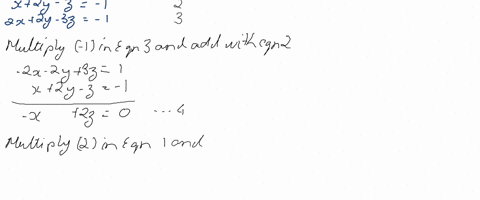 x+2y-z = -1 2
2x+2y-3z = -1 3
Multiply (-1) in Eqn 3 and add with eqn 2
-2x-2y+3z = 1
x+2y-z = -1
-x +2z = 0 ... 4
Multiply (2) in Eqn 1 and